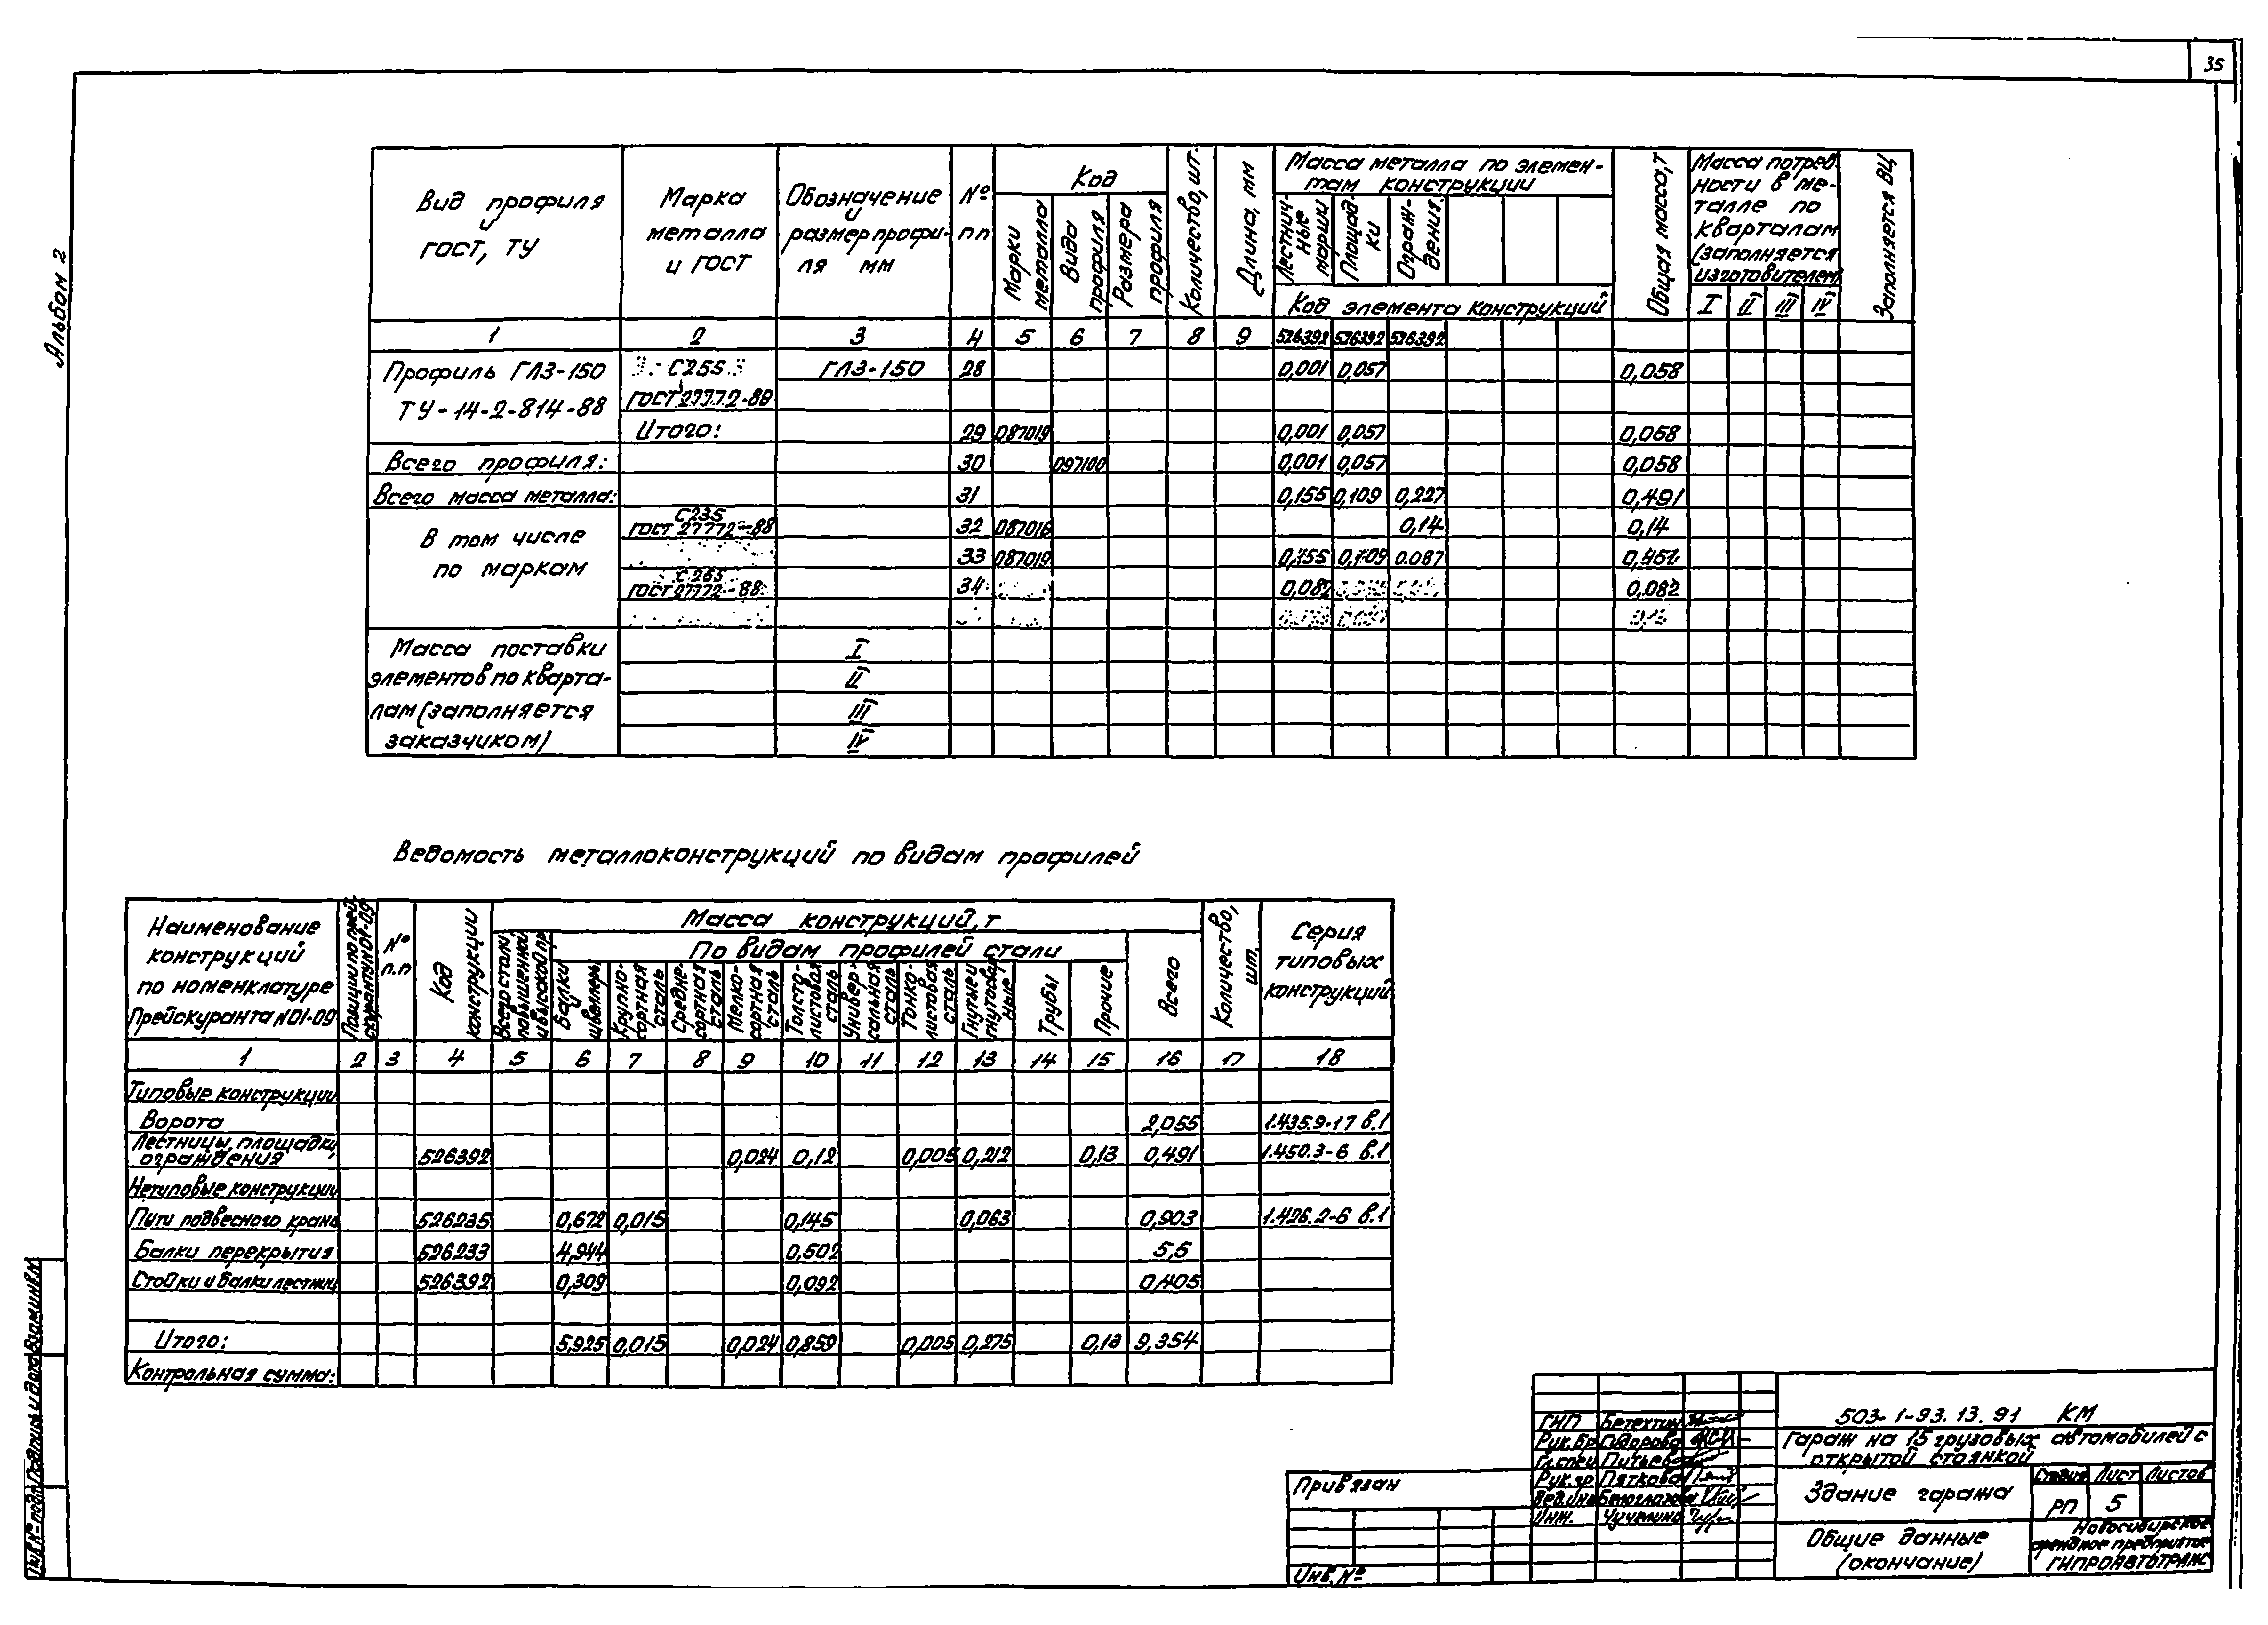 35
Альбом 2
Вид профиля и ГОСТ, ТУ
Марка металла и ГОСТ
Обозначение и размер профиля мм
№ пп
Код
Марки металла
Вида профиля
Размера профиля
Количество, шт.
Длина, мм
Масса металла по элементам конструкции
Лестничные марши
Площадки
Ограждения
Код элемента конструкций
Общая масса, т
Масса потребности в металле по кварталам (заполняется изготовителем)
I II III IV
Заполняется ВЦ
1 2 3 4 5 6 7 8 9 526392 526392 526392
Профиль ГЛЗ-150 С255 ГЛЗ-150 28 0,001 0,057 0,058
ТУ-14-2-814-88 ГОСТ 27772-88
Итого: 29 087019 0,001 0,057 0,058
Всего профиля: 30 097100 0,001 0,057 0,058
Всего масса металла: 31 0,155 0,109 0,227 0,491
В том числе по маркам
С235 ГОСТ 27772-88 32 087016 0,14 0,14
33 087019 0,155 0,109 0.087
ГОСТ 27772-88 34 0,082 0,082
Масса поставки I
элементов по кварта- II
лам (заполняется III
заказчиком) IV
Ведомость металлоконструкций по видам профилей
Наименование конструкций по номенклатуре Прейскуранта N01-09
№ п.п
Код конструкции
Масса конструкций, т
По видам профилей стали
Балки и швеллеры
Крупносортная сталь
Среднесортная сталь
Мелкосортная сталь
Толстолистовая сталь
Универсальная сталь
Тонколистовая сталь
Трубы
Прочие
Всего
Количество, шт.
Серия типовых конструкций
1 2 3 4 5 6 7 8 9 10 11 12 13 14 15 16 17 18
Типовые конструкции
Ворота 2,055 1.435.9-17 в.1
Лестницы, площадки,
ограждения 526392 0,024 0,12 0,005 0,212 0,13 0,491 1.450.3-6 в.1
Нетиповые конструкции
Пути подвесного крана 526235 0,672 0,015 0,145 0,063 0,903 1.426.2-6 в.1
Балки перекрытия 526233 4,944 0,502 5,5
Стойки и балки лестниц 526392 0,309 0,092 0,405
Итого: 5,925 0,015 0,024 0,859 0,005 0,275 0,13 9,354
Контрольная сумма:
Инв.№ подл. Подпись и дата Взам.инв.№
Привязан
Инв. №
ГИП Бетехтин
Рук.бр Сидорова
Гл.спец Питьев
Рук.гр Пяткова
Вед.инж Белоглазова
Инж. Чучелина
503-1-93.13.91 КМ
Гараж на 15 грузовых автомобилей с
открытой стоянкой
Здание гаража
Стадия Лист Листов
РП 5
Общие данные
(окончание)
Новосибирское
арендное предприятие
ГИПРОАВТОТРАНС